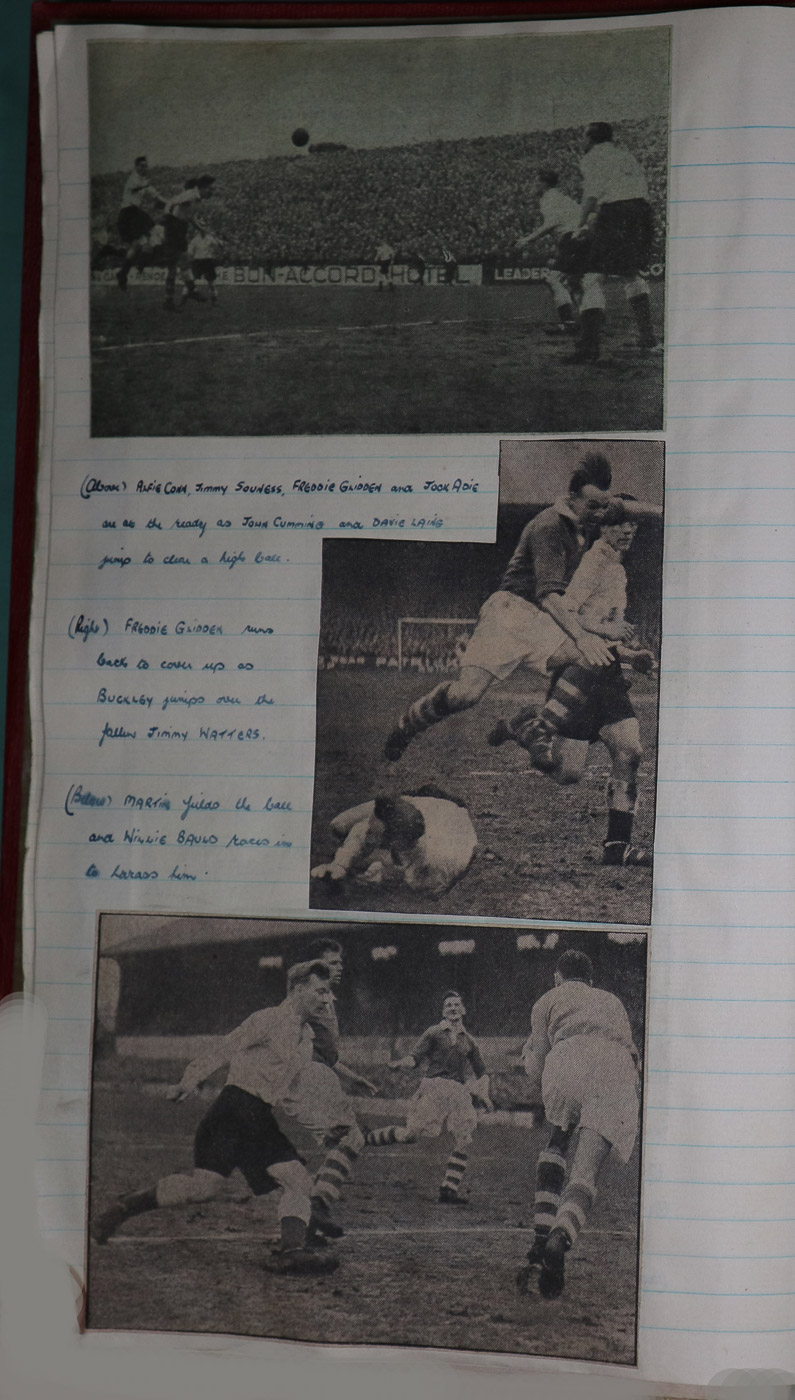 BON-ACCORD HOTEL LEADER CO
(Above) ALFIE CONN, Jimmy SOUNESS, FREDDIE GLIDDEN and JOCK ADIE
are at the ready as JOHN CUMMING and DAVIE LAING
jump to clear a high ball.
(Right) FREDDIE GLIDDEN runs
back to cover up as
BUCKLEY jumps over the
fallen JIMMY WATTERS.
(Below) MARTIN fields the ball
and WILLIE BAULD races in
to harass him.